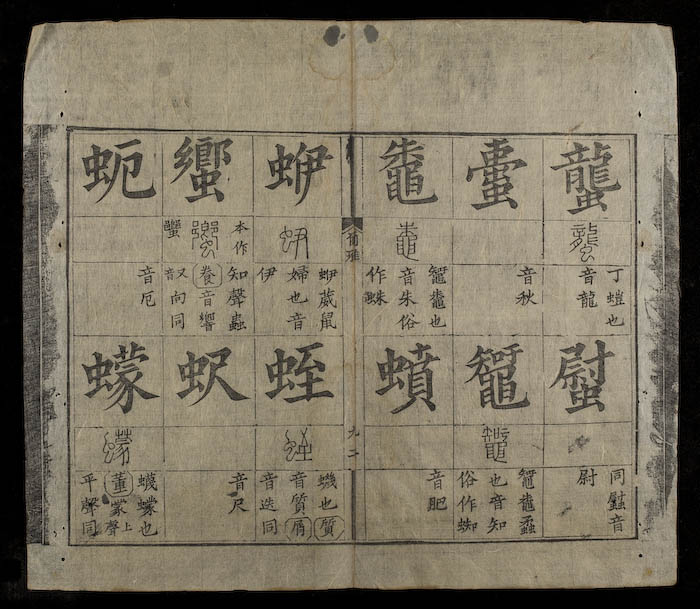 蠪
丁螘也
音龍
音秋
鼄
鼅鼄也
音朱俗
作蛛
同螱音
尉
鼅
鼅鼄蟊
也音知
俗作蜘
蟦
音肥
爾雅
九二
蛜
蛜蝛鼠
婦也音
伊
蠁
本作
知聲蟲
養音響
又向同
音
蚅
音厄
蛭
蟣也質
音質屑
音迭同
蚇
音尺
蠓
蠛蠓也
董蒙上聲
平聲同